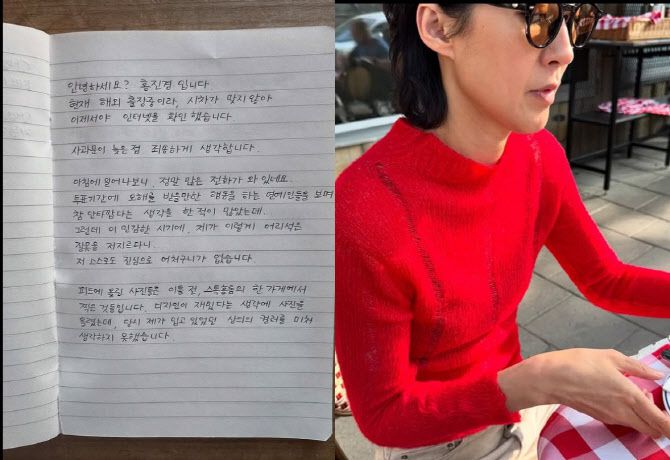 안녕하세요? 홍진경 입니다
현재 해외 출장중이라, 시차가 맞지않아
이제서야 인터넷을 확인 했습니다.
사과문이 늦은점 죄송하게 생각합니다.
아침에 일어나보니, 정말 많은 전화가 와 있네요.
투표기간에 오해를 받을만한 행동을 하는 연예인들을 보며
참 안타깝다는 생각을 한 적이 많았는데.
그런데 이 민감한 시기에, 제가 이렇게 어리석은
잘못을 저지르다니.
저 스스로도 진심으로 어처구니가 없습니다.
피드에 올린 사진들은 이틀 전, 스톡홀롬의 한 가게에서
찍은 것들입니다. 디자인이 재밌다는 생각에 사진을
올렸는데, 당시 제가 입고있었던 상의의 컬러를 미처
생각하지 못했습니다.